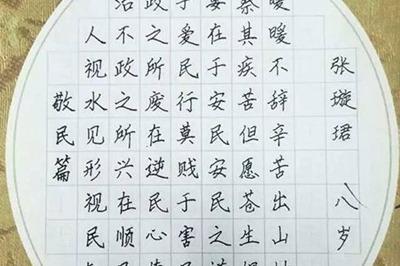 张璇珺 八岁
暖暖不辞辛苦出山
察其疾苦但愿苍生
在于安民安民之
于爱民行莫贱于害
政之所废在逆民心
不政之所兴在顺
人视水见形视民
敬民篇